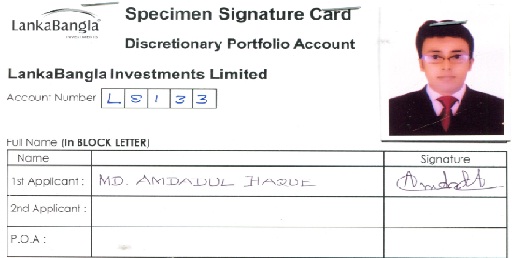 LankaBangla
Specimen Signature Card
Discretionary Portfolio Account
LankaBangla Investments Limited
Account Number L S 1 3 3
Full Name (In BLOCK LETTER)
Name Signature
1st Applicant : MD. AMDADUL HAQUE Amdadul
2nd Applicant :
P.O.A :